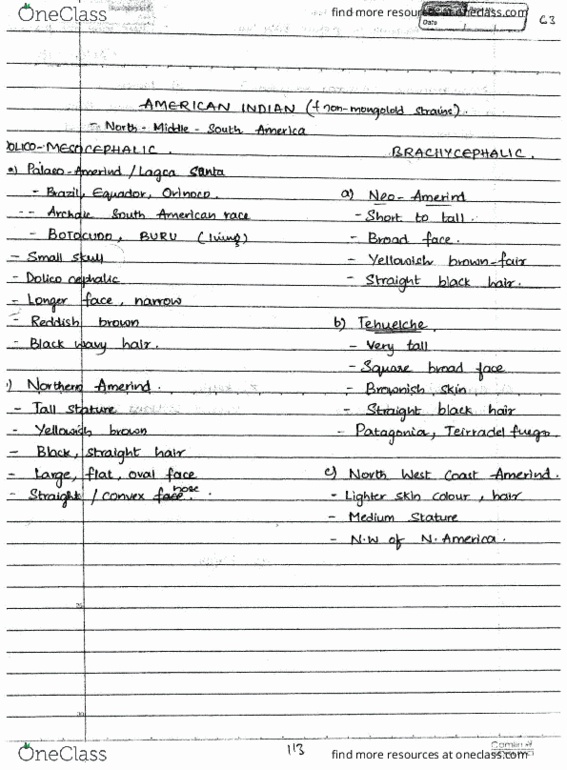 OneClass
find more resources at oneclass.com
Date
63
AMERICAN INDIAN (f non-mongoloid strains).
- North - Middle - South America
DOLICO-MESOCEPHALIC.
a) Palaeo-Amerind / Lagoa Santa
- Brazil, Equador, Orinoco.
-- Archaic South American race
- BOTOCUDO, BURU (living)
- Small skull
- Dolico cephalic
- Longer face, narrow
- Reddish brown
- Black wavy hair.
) Northern Amerind.
- Tall stature
- Yellowish brown
- Black, straight hair
- Large, flat, oval face
- Straight / convex face nose.
BRACHYCEPHALIC.
a) Neo-Amerind
- Short to tall.
- Broad face.
- Yellowish brown-fair
- Straight black hair.
b) Tehuelche.
- Very tall
- Square broad face
- Brownish skin
- Straight black hair
- Patagonia, Teirradel fuego.
c) North West Coast Amerind.
- Lighter skin colour, hair
- Medium Stature
- N.W of N. America.
25
30
113
OneClass
find more resources at oneclass.com